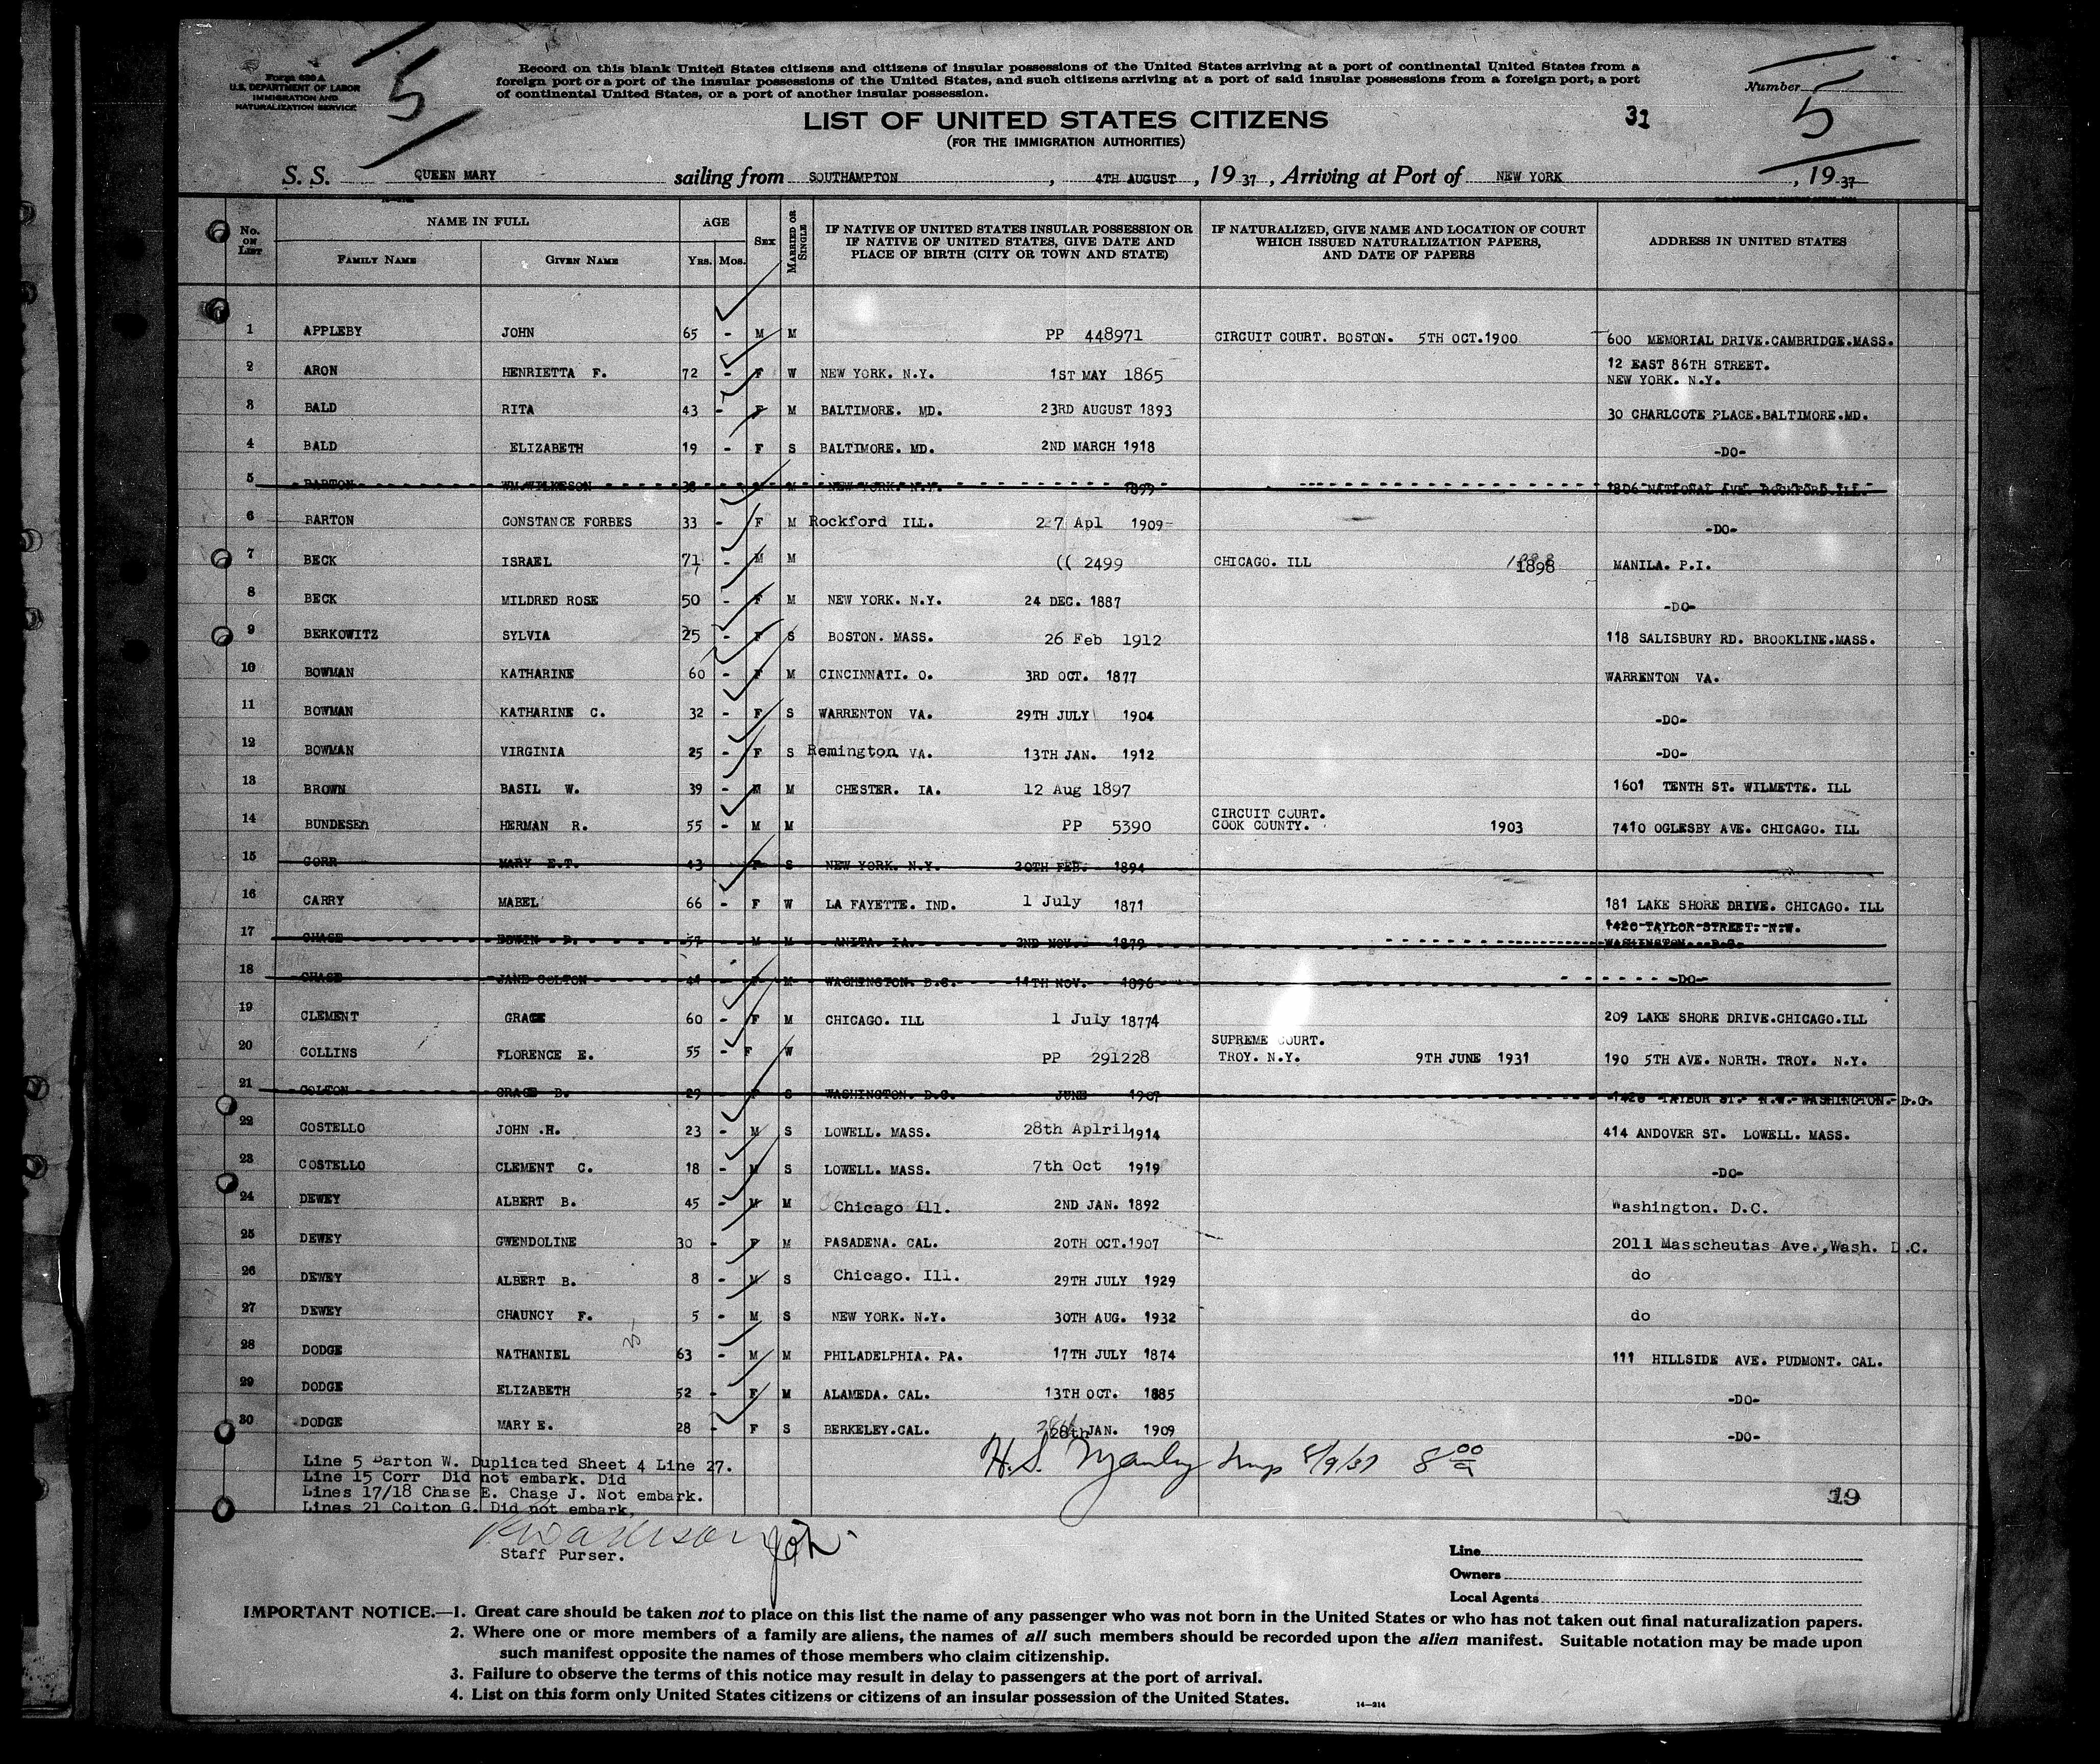 5
Form 630 A
U.S. DEPARTMENT OF LABOR
IMMIGRATION AND
NATURALIZATION SERVICE
Record on this blank United States citizens and citizens of insular possessions of the United States arriving at a port of continental United States from a
foreign port or a port of the insular possessions of the United States, and such citizens arriving at a port of said insular possessions from a foreign port, a port
of continental United States, or a port of another insular possession.
Number
5
LIST OF UNITED STATES CITIZENS
31
(FOR THE IMMIGRATION AUTHORITIES)
S. S. QUEEN MARY sailing from SOUTHAMPTON, 4TH AUGUST, 19 37, Arriving at Port of NEW YORK, 19 37
No. ON LIST NAME IN FULL AGE SEX MARRIED OR SINGLE IF NATIVE OF UNITED STATES INSULAR POSSESSION OR IF NATIVE OF UNITED STATES, GIVE DATE AND PLACE OF BIRTH (CITY OR TOWN AND STATE) IF NATURALIZED, GIVE NAME AND LOCATION OF COURT WHICH ISSUED NATURALIZATION PAPERS, AND DATE OF PAPERS ADDRESS IN UNITED STATES
FAMILY NAME GIVEN NAME YRS. MOS.
1 APPLEBY JOHN 65 - M M PP 448971 CIRCUIT COURT. BOSTON. 5TH OCT.1900 600 MEMORIAL DRIVE.CAMBRIDGE.MASS.
2 ARON HENRIETTA F. 72 - F W NEW YORK. N.Y. 1ST MAY 1865 12 EAST 86TH STREET. NEW YORK. N.Y.
3 BALD RITA 43 - F M BALTIMORE. MD. 23RD AUGUST 1893 30 CHARLCOTE PLACE.BALTIMORE.MD.
4 BALD ELIZABETH 19 - F S BALTIMORE. MD. 2ND MARCH 1918 -DO-
5 BARTON WM.WILKESON 38 M NEW YORK. N.Y. 1899 1806 NATIONAL AVE. ROCKFORD.ILL.
6 BARTON CONSTANCE FORBES 33 - F M Rockford ILL. 27 Apl 1909 -DO-
7 BECK ISRAEL 71 - M M (( 2499 CHICAGO. ILL 1898 MANILA. P.I.
8 BECK MILDRED ROSE 50 - F M NEW YORK. N.Y. 24 DEC. 1887 -DO-
9 BERKOWITZ SYLVIA 25 - F S BOSTON. MASS. 26 Feb 1912 118 SALISBURY RD. BROOKLINE.MASS.
10 BOWMAN KATHARINE 60 - F M CINCINNATI. O. 3RD OCT. 1877 WARRENTON VA.
11 BOWMAN KATHARINE C. 32 - F S WARRENTON VA. 29TH JULY 1904 -DO-
12 BOWMAN VIRGINIA 25 - F S Remington VA. 13TH JAN. 1912 -DO-
13 BROWN BASIL W. 39 - M M CHESTER. IA. 12 Aug 1897 1601 TENTH ST. WILMETTE. ILL
14 BUNDESEn HERMAN R. 55 - M M PP 5390 CIRCUIT COURT. COOK COUNTY. 1903 7410 OGLESBY AVE. CHICAGO. ILL
15 CORR MARY E.T. 43 F S NEW YORK. N.Y. 20TH FEB. 1894
16 CARRY MABEL 66 - F W LA FAYETTE. IND. 1 July 1871 181 LAKE SHORE DRIVE. CHICAGO. ILL
17 CHASE EDWIN D. 57 M M ANITA. IA. 2ND NOV. 1879 1426 TAYLOR STREET. N.W. WASHINGTON. D.C.
18 CHASE JANE COLTON 41 F M WASHINGTON. D.C. 11TH NOV. 1896 -DO-
19 CLEMENT GRACE 60 - F M CHICAGO. ILL 1 July 18774 209 LAKE SHORE DRIVE.CHICAGO.ILL
20 COLLINS FLORENCE E. 55 - F W PP 291228 SUPREME COURT. TROY. N.Y. 9TH JUNE 1931 190 5TH AVE. NORTH. TROY. N.Y.
21 COLTON GRACE B. 29 F S WASHINGTON. D.C. JUNE 1907 1426 TAYLOR ST. N.W. WASHINGTON. D.C.
22 COSTELLO JOHN .H. 23 - M S LOWELL. MASS. 28th Aplril 1914 414 ANDOVER ST. LOWELL. MASS.
23 COSTELLO CLEMENT C. 18 - M S LOWELL. MASS. 7th Oct 1919 -DO-
24 DEWEY ALBERT B. 45 - M M Chicago Ill. 2ND JAN. 1892 Washington. D.C.
25 DEWEY GWENDOLINE 30 - F M PASADENA. CAL. 20TH OCT.1907 2011 Masscheutas Ave.,Wash. D.C.
26 DEWEY ALBERT B. 8 - M S Chicago. Ill. 29TH JULY 1929 do
27 DEWEY CHAUNCY F. 5 - M S NEW YORK. N.Y. 30TH AUG. 1932 do
28 DODGE NATHANIEL 63 - M M PHILADELPHIA. PA. 17TH JULY 1874 111 HILLSIDE AVE. PUDMONT. CAL.
29 DODGE ELIZABETH 52 - F M ALAMEDA. CAL. 13TH OCT. 1885 -DO-
30 DODGE MARY E. 28 - F S BERKELEY.CAL. 28th JAN. 1909 -DO-
Line 5 Barton W. Duplicated Sheet 4 Line 27.
Line 15 Corr Did not embark. Did
Lines 17/18 Chase E. Chase J. Not embark.
Lines 21 Colton G. Did not embark,
H.S. Insp 8/9/37 8 00 a
19
Staff Purser.
Line
Owners
Local Agents
IMPORTANT NOTICE.—1. Great care should be taken not to place on this list the name of any passenger who was not born in the United States or who has not taken out final naturalization papers.
2. Where one or more members of a family are aliens, the names of all such members should be recorded upon the alien manifest. Suitable notation may be made upon
such manifest opposite the names of those members who claim citizenship.
3. Failure to observe the terms of this notice may result in delay to passengers at the port of arrival.
4. List on this form only United States citizens or citizens of an insular possession of the United States.
14—214